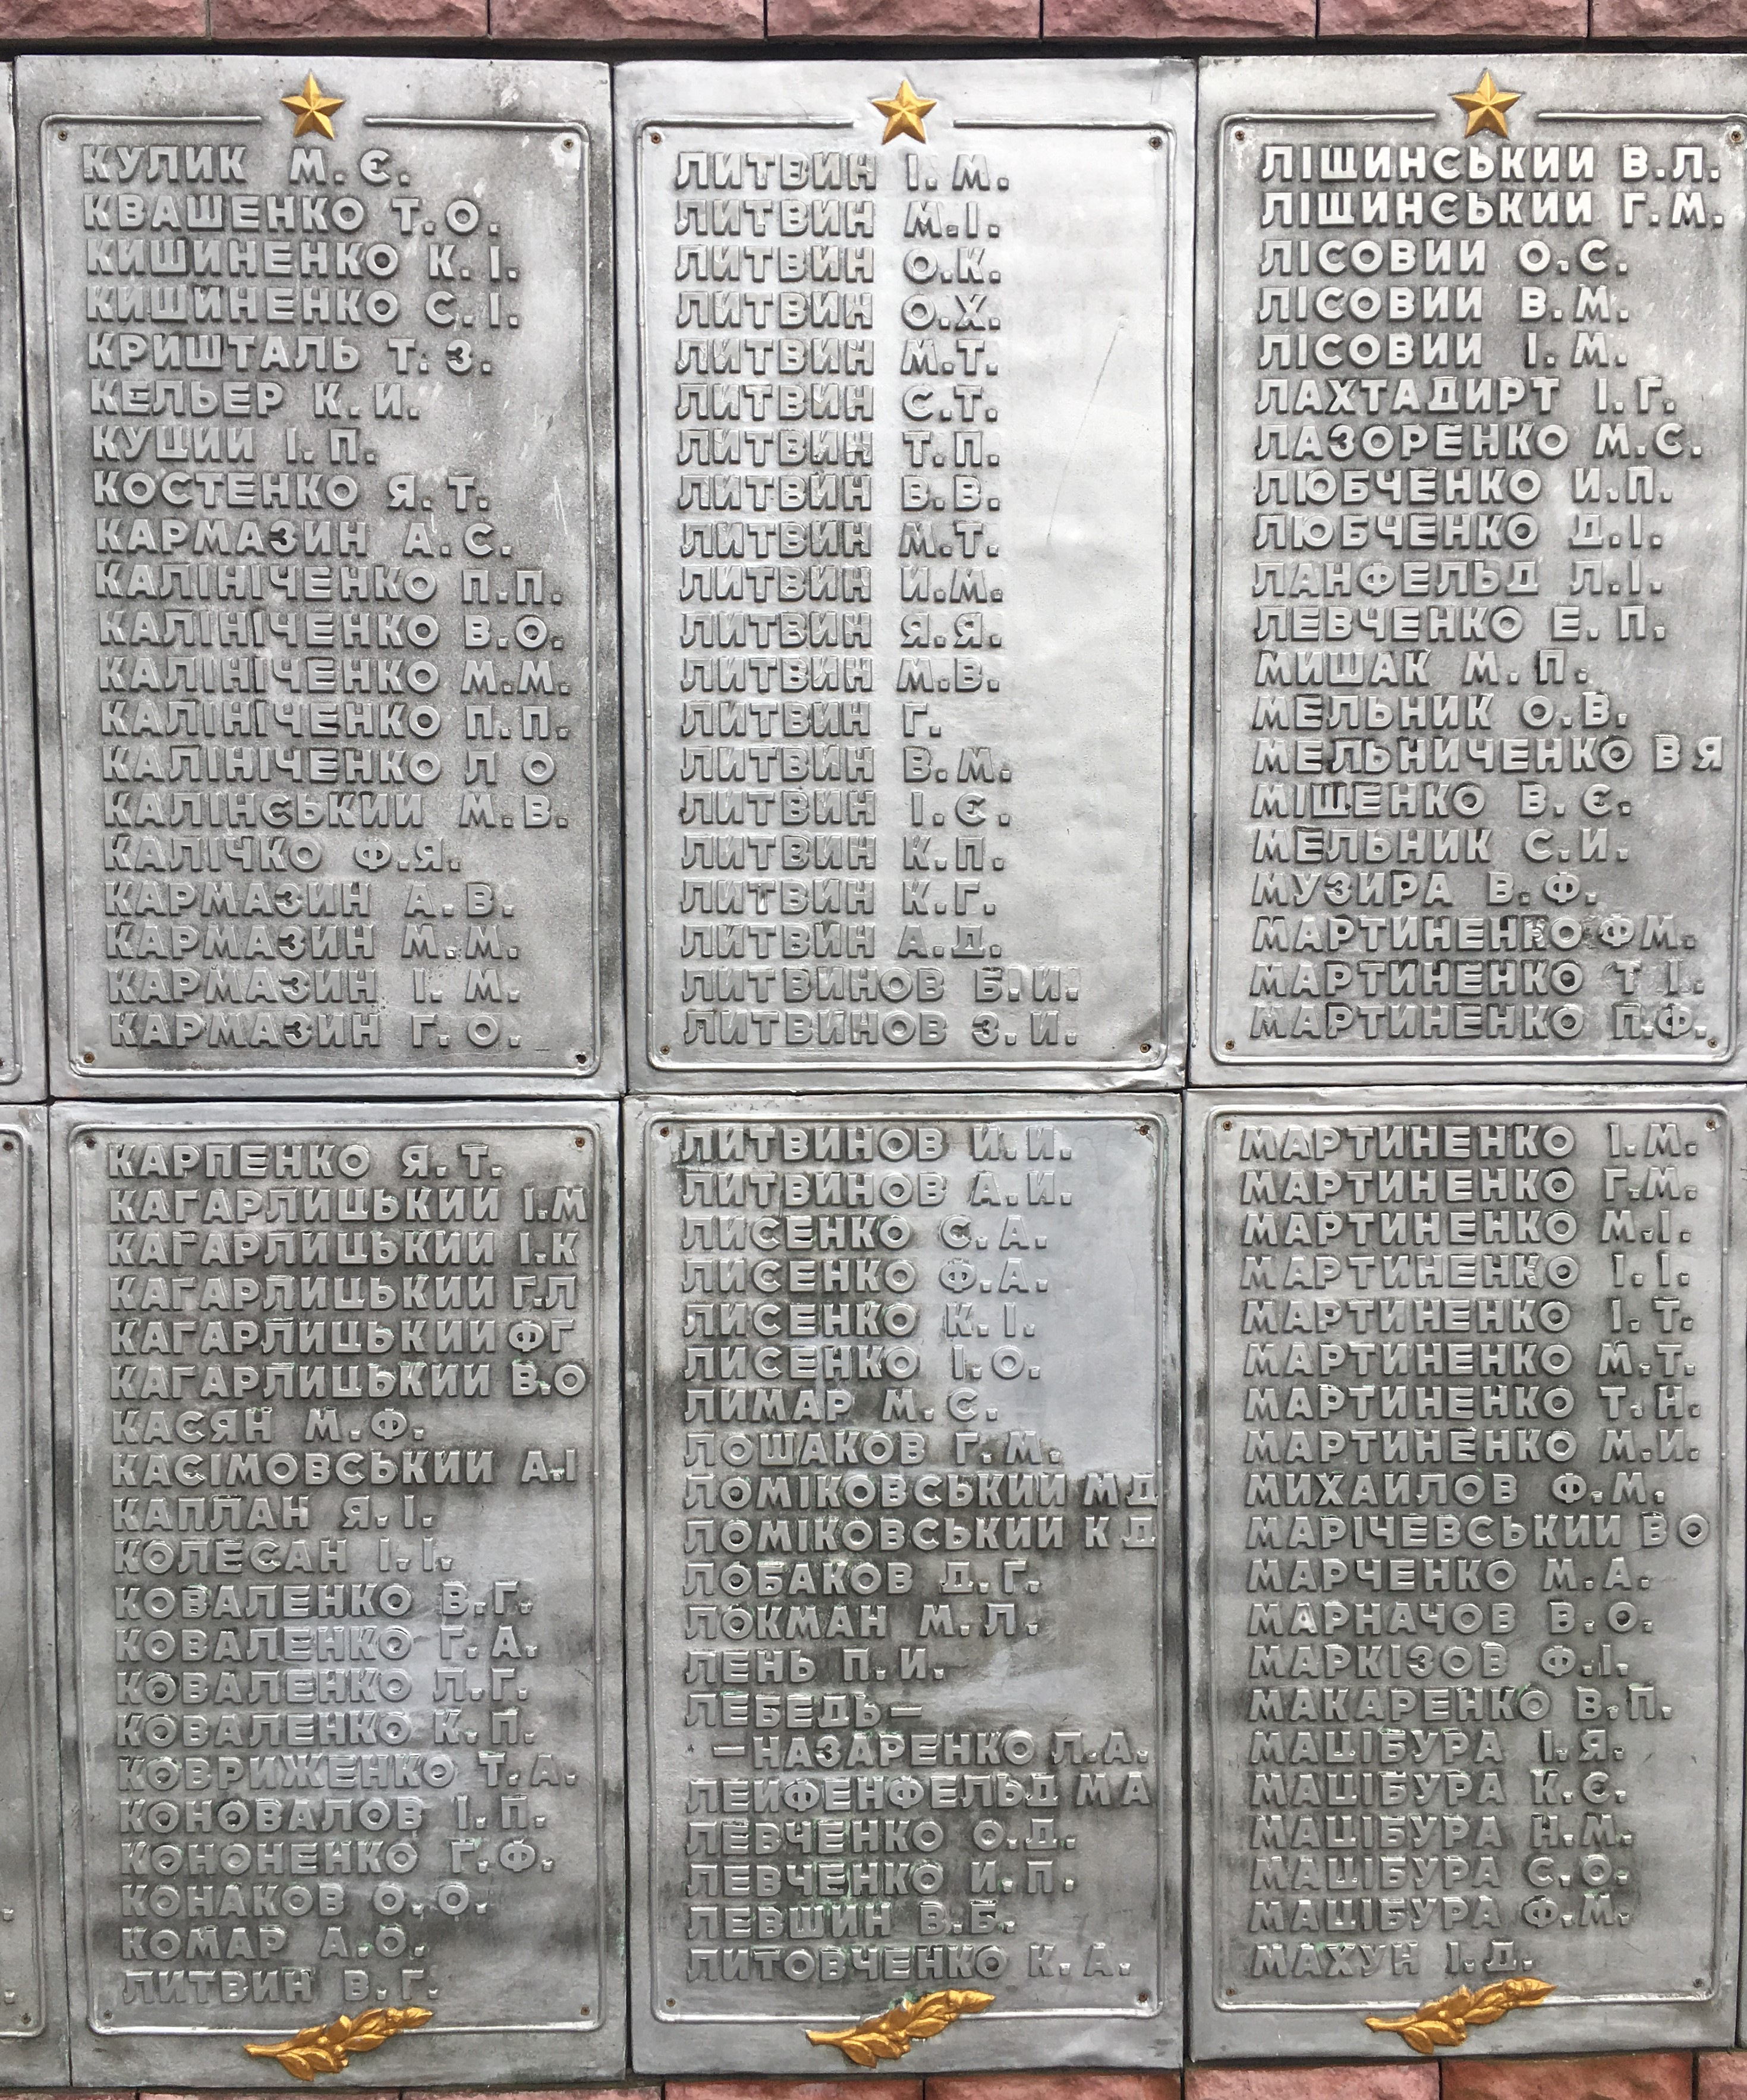 КУЛИК М.Є.
КВАШЕНКО Т.О.
КИШИНЕНКО К.І.
КИШИНЕНКО С.І.
КРИШТАЛЬ Т.З.
КЕЛЬЕР К.И.
КУЦИИ І.П.
КОСТЕНКО Я.Т.
КАРМАЗИН А.С.
КАЛІНІЧЕНКО П.П.
КАЛІНІЧЕНКО В.О.
КАЛІНІЧЕНКО М.М.
КАЛІНІЧЕНКО П.П.
КАЛІНІЧЕНКО Л О
КАЛІНСЬКИИ М.В.
КАЛІЧКО Ф.Я.
КАРМАЗИН А.В.
КАРМАЗИН М.М.
КАРМАЗИН І.М.
КАРМАЗИН Г.О.
КАРПЕНКО Я.Т.
КАГАРЛИЦЬКИИ І.М
КАГАРЛИЦЬКИИ І.К
КАГАРЛИЦЬКИИ Г.Л
КАГАРЛИЦЬКИИ ФГ
КАГАРЛИЦЬКИИ В.О
КАСЯН М.Ф.
КАСІМОВСЬКИИ А.І
КАПЛАН Я.І.
КОЛЕСАН І.І.
КОВАЛЕНКО В.Г.
КОВАЛЕНКО Г.А.
КОВАЛЕНКО Л.Г.
КОВАЛЕНКО К.П.
КОВРИЖЕНКО Т.А.
КОНОВАЛОВ І.П.
КОНОНЕНКО Г.Ф.
КОНАКОВ О.О.
КОМАР А.О.
ЛИТВИН В.Г.
ЛИТВИН І.М.
ЛИТВИН М.І.
ЛИТВИН О.К.
ЛИТВИН О.Х.
ЛИТВИН М.Т.
ЛИТВИН С.Т.
ЛИТВИН Т.П.
ЛИТВИН В.В.
ЛИТВИН М.Т.
ЛИТВИН И.М.
ЛИТВИН Я.Я.
ЛИТВИН М.В.
ЛИТВИН Г.
ЛИТВИН В.М.
ЛИТВИН І.Є.
ЛИТВИН К.П.
ЛИТВИН К.Г.
ЛИТВИН А.Д.
ЛИТВИНОВ Б.И.
ЛИТВИНОВ З.И.
ЛИТВИНОВ И.И.
ЛИТВИНОВ А.И.
ЛИСЕНКО С.А.
ЛИСЕНКО Ф.А.
ЛИСЕНКО К.І.
ЛИСЕНКО І.О.
ЛИМАР М.С.
ЛОШАКОВ Г.М.
ЛОМІКОВСЬКИИ М Д
ЛОМІКОВСЬКИИ К Д
ЛОБАКОВ Д.Г.
ЛОКМАН М.Л.
ЛЕНЬ П.И.
ЛЕБЕДЬ—
—НАЗАРЕНКО Л.А.
ЛЕИФЕНФЕЛЬД М А
ЛЕВЧЕНКО О.Д.
ЛЕВЧЕНКО И.П.
ЛЕВШИН В.Б.
ЛИТОВЧЕНКО К.А.
ЛІЩИНСЬКИИ В.Л.
ЛІЩИНСЬКИИ Г.М.
ЛІСОВИИ О.С.
ЛІСОВИИ В.М.
ЛІСОВИИ І.М.
ЛАХТАДИРТ І.Г.
ЛАЗОРЕНКО М.С.
ЛЮБЧЕНКО И.П.
ЛЮБЧЕНКО Д.І.
ЛАНФЕЛЬД Л.І.
ЛЕВЧЕНКО Е.П.
МИШАК М.П.
МЕЛЬНИК О.В.
МЕЛЬНИЧЕНКО В Я
МІЩЕНКО В.Є.
МЕЛЬНИК С.И.
МУЗИРА В.Ф.
МАРТИНЕНКО ФМ.
МАРТИНЕНКО Т І.
МАРТИНЕНКО П.Ф.
МАРТИНЕНКО І.М.
МАРТИНЕНКО Г.М.
МАРТИНЕНКО М.І.
МАРТИНЕНКО І.І.
МАРТИНЕНКО І.Т.
МАРТИНЕНКО М.Т.
МАРТИНЕНКО Т.Н.
МАРТИНЕНКО М.И.
МИХАИЛОВ Ф.М.
МАРІЧЕВСЬКИИ В О
МАРЧЕНКО М.А.
МАРНАЧОВ В.О.
МАРКІЗОВ Ф.І.
МАКАРЕНКО В.П.
МАЦІБУРА І.Я.
МАЦІБУРА К.Є.
МАЦІБУРА Н.М.
МАЦІБУРА С.О.
МАЦІБУРА Ф.М.
МАХУН І.Д.